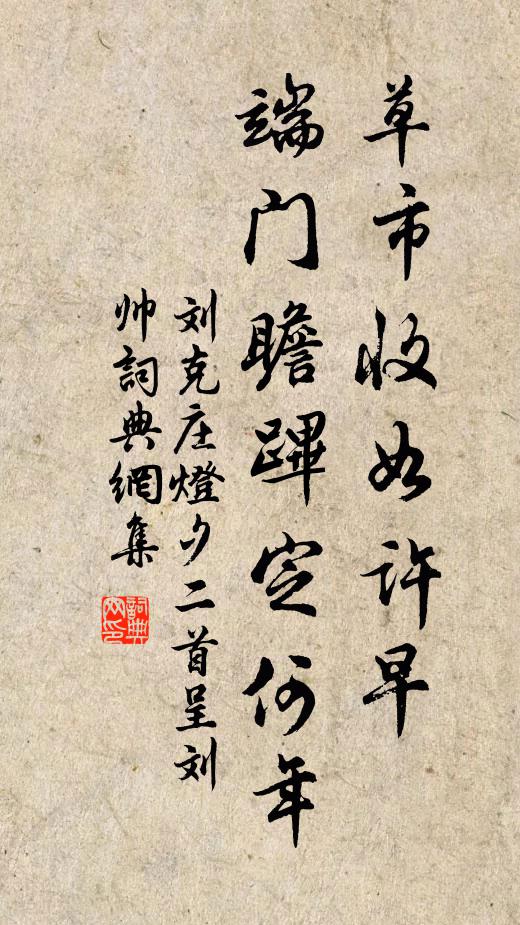 草市收如许早
端门瞻蹕定何年
刘克庄燈夕二首呈刘
帅詞典網集
詞典網印